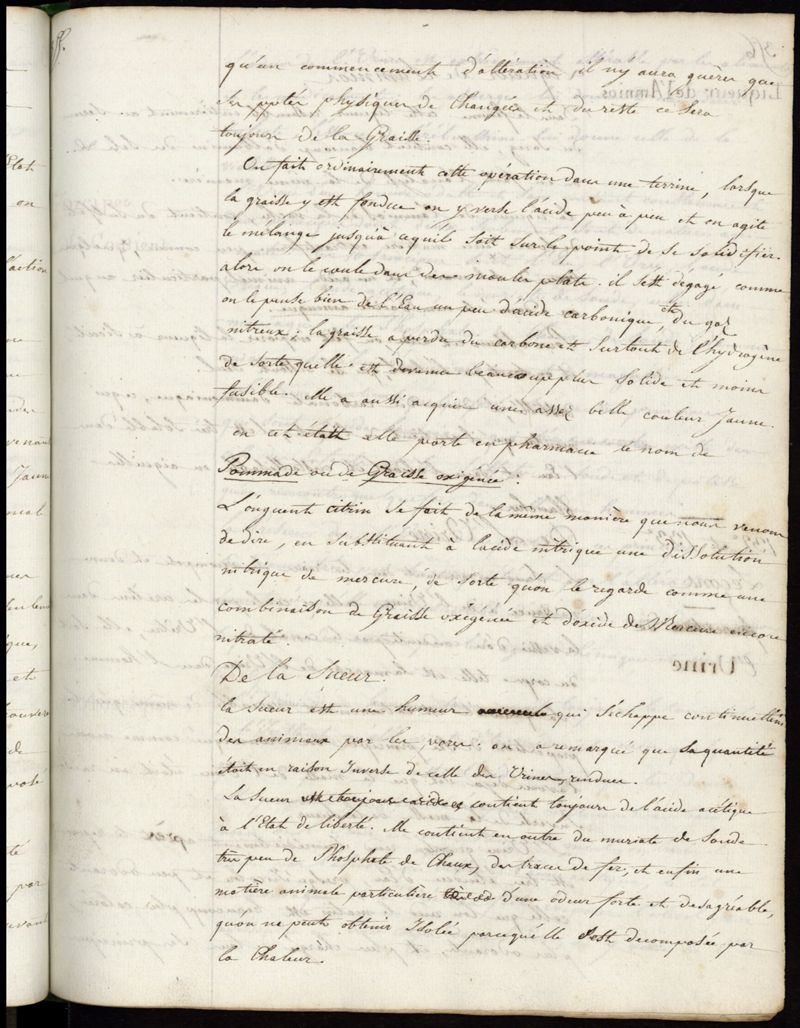 qu'un commencement d'altération, il n'y aura guères que
ses ppetés physiques de changées et du reste ce sera
toujours de la Graisse.
On fait ordinairement cette opération dans une terrine, lorsque
la graisse y est fondue on y verse l'acide peu à peu et on agite
le mélange jusqu'à cequ'il soit sur le point de se solidifier.
alors on le coule dans des moules plats. il s'est dégagé comme
on le pense bien de l'Eau un peu d'acide carbonique, et du gaz
nitreux; la graisse a perdu du carbone et surtout de l'hydrogène
de sorte qu'elle est devenue beaucoup plus solide et moins
fusible. elle a aussi acquis une assez belle couleur Jaune.
en cet état elle porte en pharmacie le nom de
Pommade ou de Graisse oxigénée.
L'onguent citrin se fait de la même manière que nous venons
de dire, en substituant à l'acide nitrique une dissolution
nitrique de mercure, de sorte qu'on le regarde comme une
combinaison de Graisse oxigénée et d'oxide de Mercure encore
nitraté.
De la Sueur.
la sueur est une humeur qui s'échappe continuellemt
des animaux par les pores. on a remarqué que sa quantité
était en raison Inverse de celle des Urines rendues.
La sueur est toujours acide et contient toujours de l'acide acétique
à l'Etat de liberté. Elle contient en outre du muriate de Soude
très peu de Phosphate de Chaux, des traces de fer, et enfin une
matière animale particulière d'une odeur forte et désagréable,
qu'on ne peut obtenir Isolée parcequ'elle est decomposée par
la Chaleur.